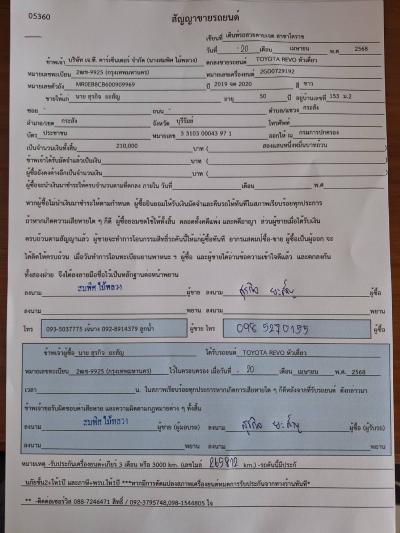 05360
สัญญาขายรถยนต์
เขียนที่ เต็นท์รถสวยตามใจ สาขาโคราช
วันที่ -20 เดือน เมษายน พ.ศ. 2568
ข้าพเจ้า บริษัท เจ.ที. คาร์เซ็นเตอร์ จำกัด (นางสมพิศ ไม้หลวง) ตกลงขายรถยนต์ TOYOTA REVO หัวเดี่ยว
หมายเลขทะเบียน 2ฒข-9925 (กรุงเทพมหานคร) หมายเลขเครื่องยนต์ 2GD0729192
หมายเลขตัวถัง MR0EB8CB600909969 ปี 2019 จด 2020 สี ขาว
ขายให้แก่ นาย สุรกิจ ยะสัญ อายุ 50 ปี อยู่บ้านเลขที่ 153 ม.2
ซอย - ถนน - ตำบล/แขวง กระสัง
อำเภอ/เขต กระสัง จังหวัด บุรีรัมย์ โทรศัพท์
บัตร ประชาชน หมายเลข 3 3103 00043 97 1 ออกให้ ณ กรมการปกครอง
เป็นจำนวนเงินทั้งสิ้น 210,000 บาท ( สองแสนหนึ่งหมื่นบาทถ้วน
ข้าพเจ้าได้รับมัดจำแล้วเป็นเงิน บาท (
ผู้ซื้อยังคงค้างอีกเป็นจำนวนเงิน บาท (
ผู้ซื้อจะนำเงินมาชำระให้ครบจำนวนตามที่ตกลง ภายใน วันที่ เดือน พ.ศ.
หากผู้ซื้อไม่นำเงินมาชำระให้ตามกำหนด ผู้ซื้อยินยอมให้ริบเงินมัดจำและคืนรถให้ทันทีในสภาพเรียบร้อยทุกประการ
ถ้าหากเกิดความเสียหายใด ๆ ก็ดี ผู้ซื้อยอมชดใช้ให้ทั้งสิ้น ตลอดทั้งคดีแพ่ง และคดีอาญา ส่วนผู้ขายเมื่อได้รับเงิน
ครบถ้วนตามสัญญาแล้ว ผู้ขายจะทำการโอนกรรมสิทธิ์รถคันนี้ให้แก่ผู้ซื้อทันที อากรแสตมป์ซื้อ-ขาย ผู้ซื้อเป็นผู้ออก จะ
ได้ติดให้ครบถ้วน เมื่อวันทำการโอนทะเบียนยานพาหนะ ฯ ผู้ซื้อ และผู้ขายได้อ่านข้อความเข้าใจดีแล้ว และตกลงกัน
ทั้งสองฝ่าย จึงได้ลงลายมือชื่อไว้เป็นหลักฐานต่อหน้าพยาน
ลงนาม สมพิศ ไม้หลวง ผู้ขาย ลงนาม สุรกิจ ยะสัญ ผู้ซื้อ
ลงนาม พยาน ลงนาม พยาน
โทร 093-5037775 เจ๊นาง 092-8914379 ลูกน้ำ ผู้ขาย โทร 098 5270155 ผู้ซื้อ
ข้าพเจ้าผู้ซื้อ นาย สุรกิจ ยะสัญ ได้รับรถยนต์ TOYOTA REVO หัวเดี่ยว
หมายเลขทะเบียน 2ฒข-9925 (กรุงเทพมหานคร) ไว้ในครอบครอง เมื่อวันที่ -20 เดือน เมษายน พ.ศ. 2568
เวลา น. ในสภาพเรียบร้อยทุกประการหากเกิดการเสียหายใด ๆ ก็ดีหลังจากที่รับรถยนต์ ดังกล่าวมา
ข้าพเจ้าขอรับผิดชอบค่าเสียหาย และความผิดตามกฎหมายต่าง ๆ ทั้งสิ้น
ลงนาม สมพิศ ไม้หลวง ผู้ขาย (ผู้มอบรถ) ลงนาม สุรกิจ ยะสัญ ผู้ซื้อ (ผู้รับรถ)
ลงนาม พยาน ลงนาม พยาน
หมายเหตุ -รับประกันเครื่องยนต์+เกียร์ 3 เดือน หรือ 3000 km. (เลขไมล์ 265812 km.) -รถคันนี้มีประกั
นภัยชั้น2+ให้1ปี และภาษี+พรบ.ให้1ปี ***หากมีการดัดแปลงสภาพเครื่องยนต์หมดการรับประกันจากทางร้านทันที*
** -ติดต่อเซอร์วิส 088-7246471 สิทธิ์ / 092-3795748,098-1544805 ใจ